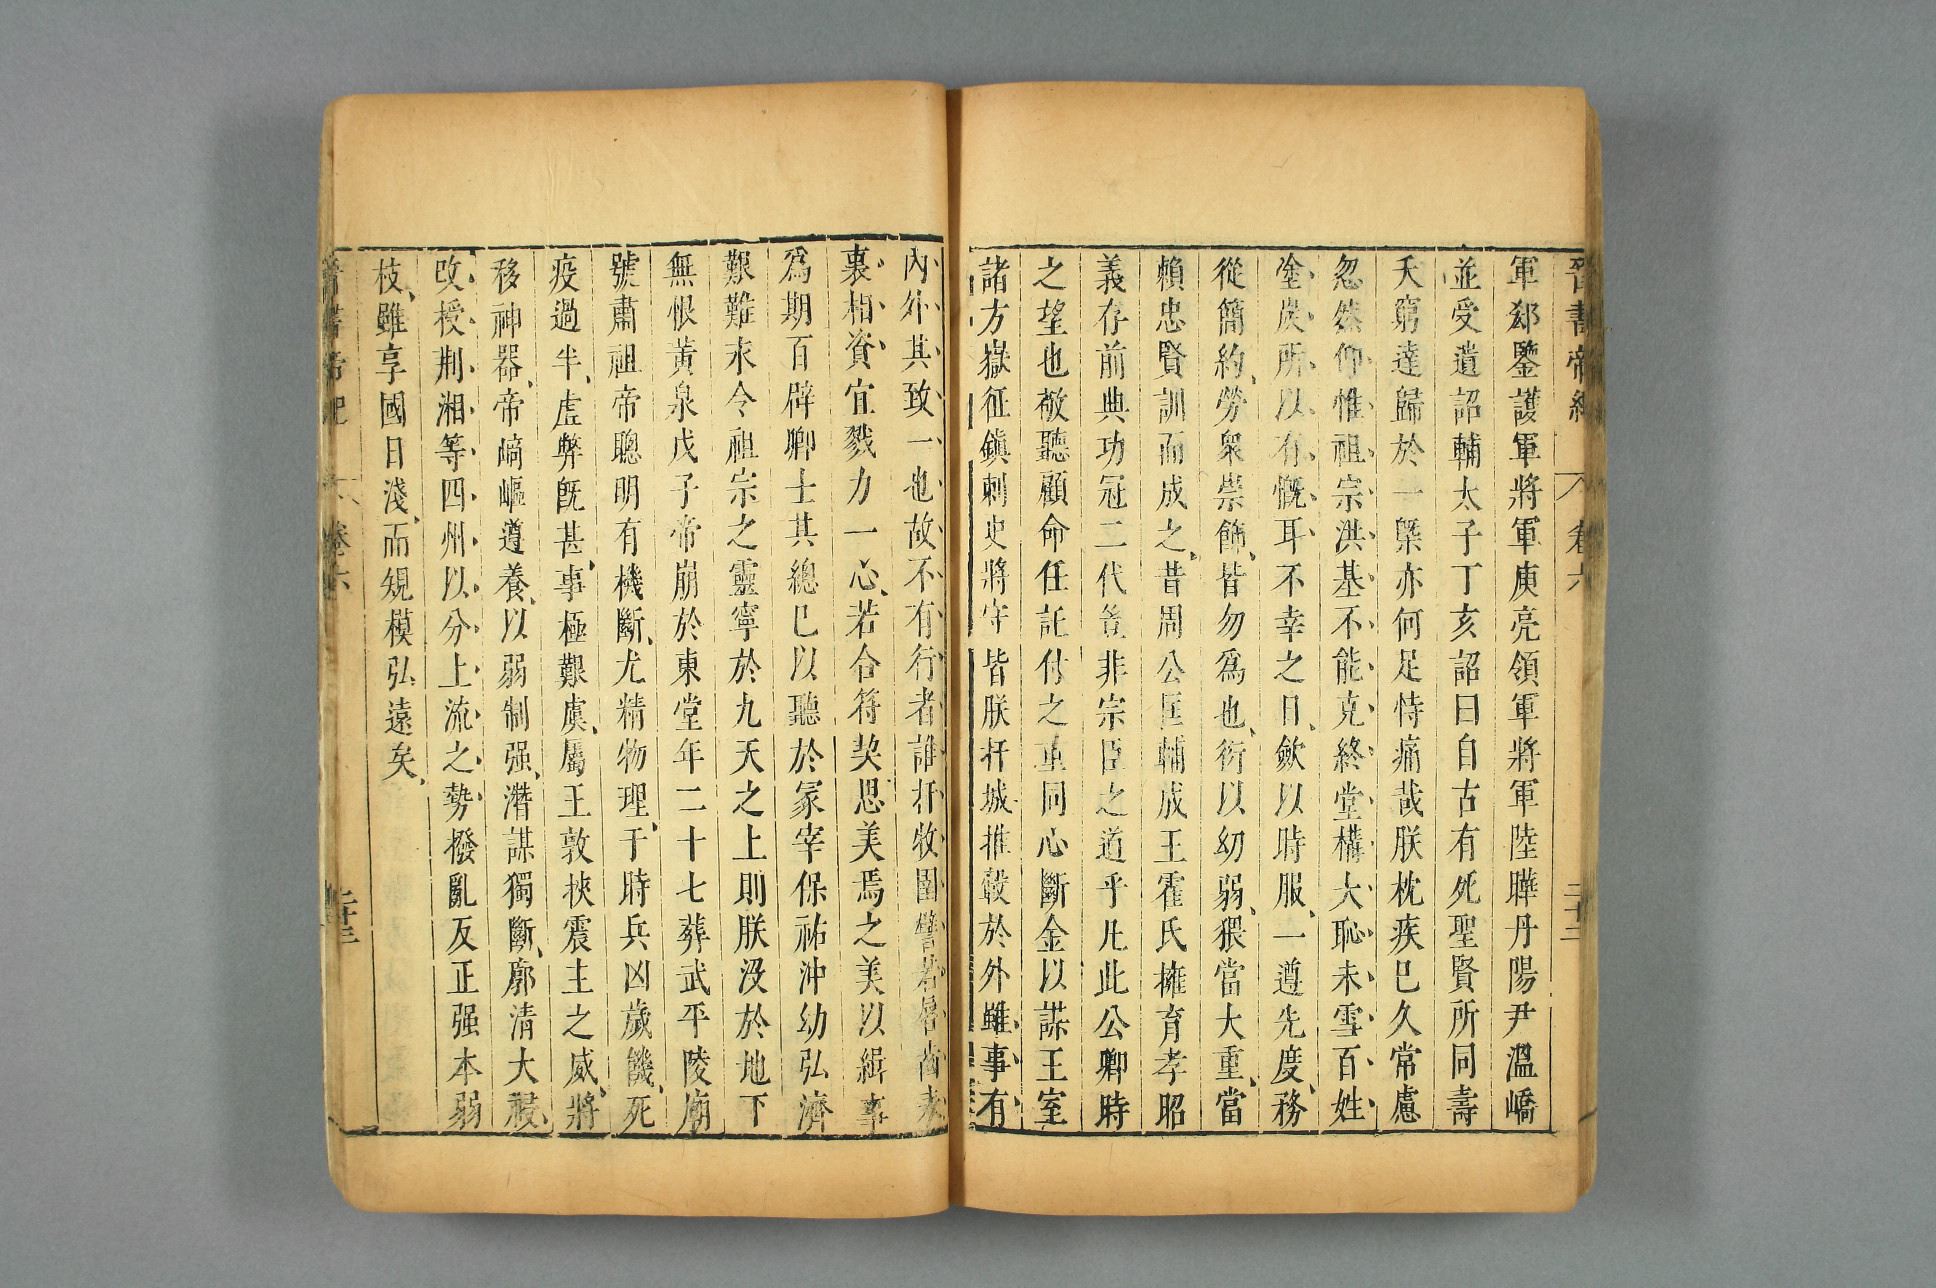 晉書帝紀 卷六 二十二
軍郄鑒護軍將軍庾亮領軍將軍陸曄丹陽尹溫嶠
並受遺詔輔太子丁亥詔曰自古有死聖賢所同壽
夭窮達歸於一槩亦何足恃痛哉朕枕疾巳久常慮
忽然仰惟祖宗洪基不能克終堂構大恥未雪百姓
塗炭所以有慨耳不幸之日歛以時服一遵先度務
從簡約勞衆崇飾皆勿爲也衍以幼弱猥當大重當
賴忠賢訓而成之昔周公匡輔成王霍氏擁育孝昭
義存前典功冠二代豈非宗臣之道乎凡此公卿時
之望也敬聽顧命任託付之重同心斷金以謀王室
諸方嶽征鎭刺史將守皆朕扞城推轂於外雖事有
內外其致一也故不有行者誰扞牧圉譬若脣齒表
裏相資宜戮力一心若合符契思美焉之美以緝事
爲期百辟卿士其總巳以聽於冢宰保祐沖幼弘濟
艱難永令祖宗之靈寧於九天之上則朕沒於地下
無恨黃泉戊子帝崩於東堂年二十七葬武平陵廟
號肅祖帝聰明有機斷尤精物理于時兵凶歲饑死
疫過半虛弊旣甚事極艱虞屬王敦挾震主之威將
移神器帝崎嶇遵養以弱制强潛謀獨斷廓清大祲
改授荆湘等四州以分上流之勢撥亂反正强本弱
枝雖享國日淺而規模弘遠矣
晉書帝紀 卷六 二十三